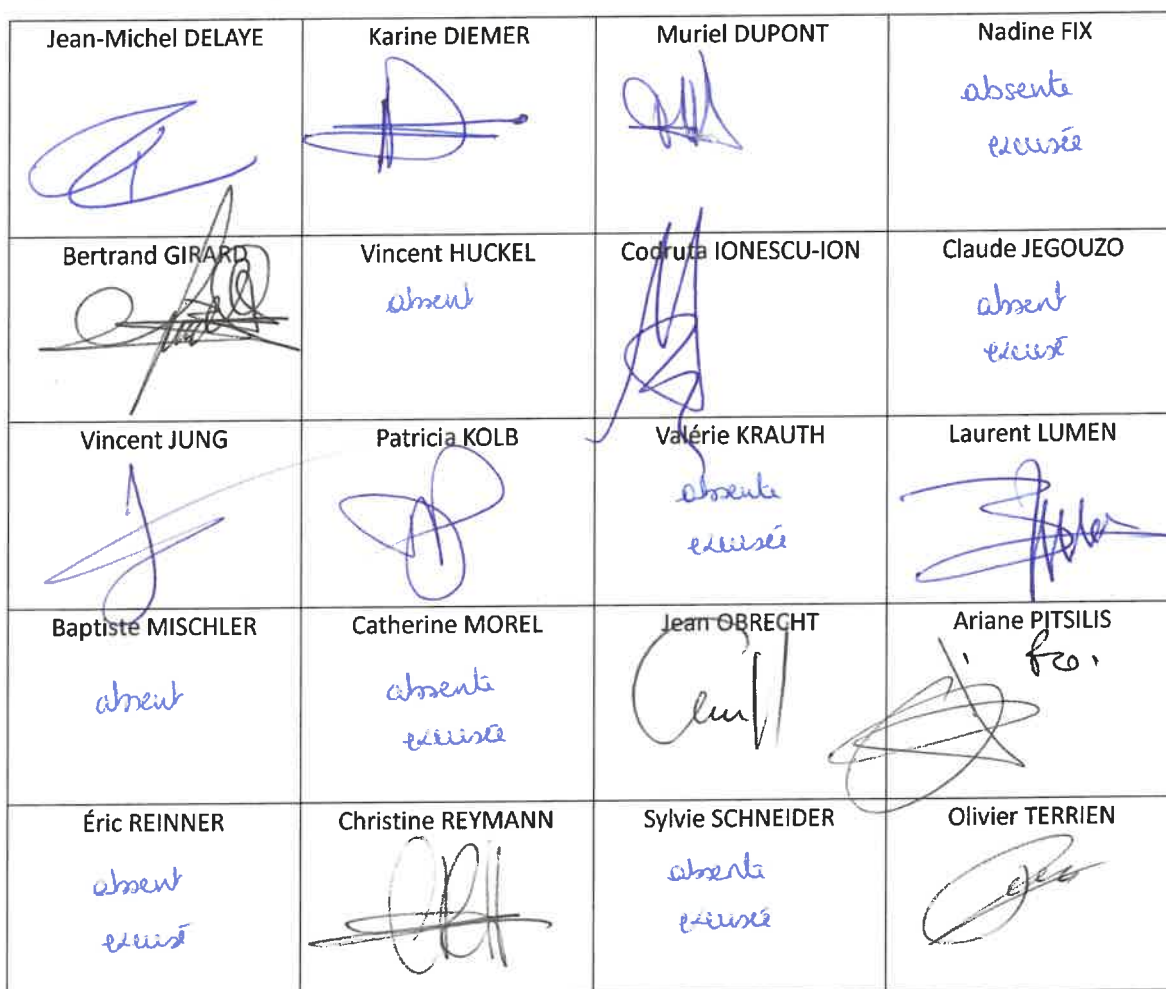 Jean-Michel DELAYE
Karine DIEMER
Muriel DUPONT
Nadine FIX
absente
excusée
Bertrand GIRARD
Vincent HUCKEL
absent
Codruta IONESCU-ION
Claude JEGOUZO
absent
excusé
Vincent JUNG
Patricia KOLB
Valérie KRAUTH
absente
excusée
Laurent LUMEN
Baptiste MISCHLER
absent
Catherine MOREL
absente
excusée
Jean OBRECHT
Ariane PITSILIS
Éric REINNER
absent
excusé
Christine REYMANN
Sylvie SCHNEIDER
absente
excusée
Olivier TERRIEN